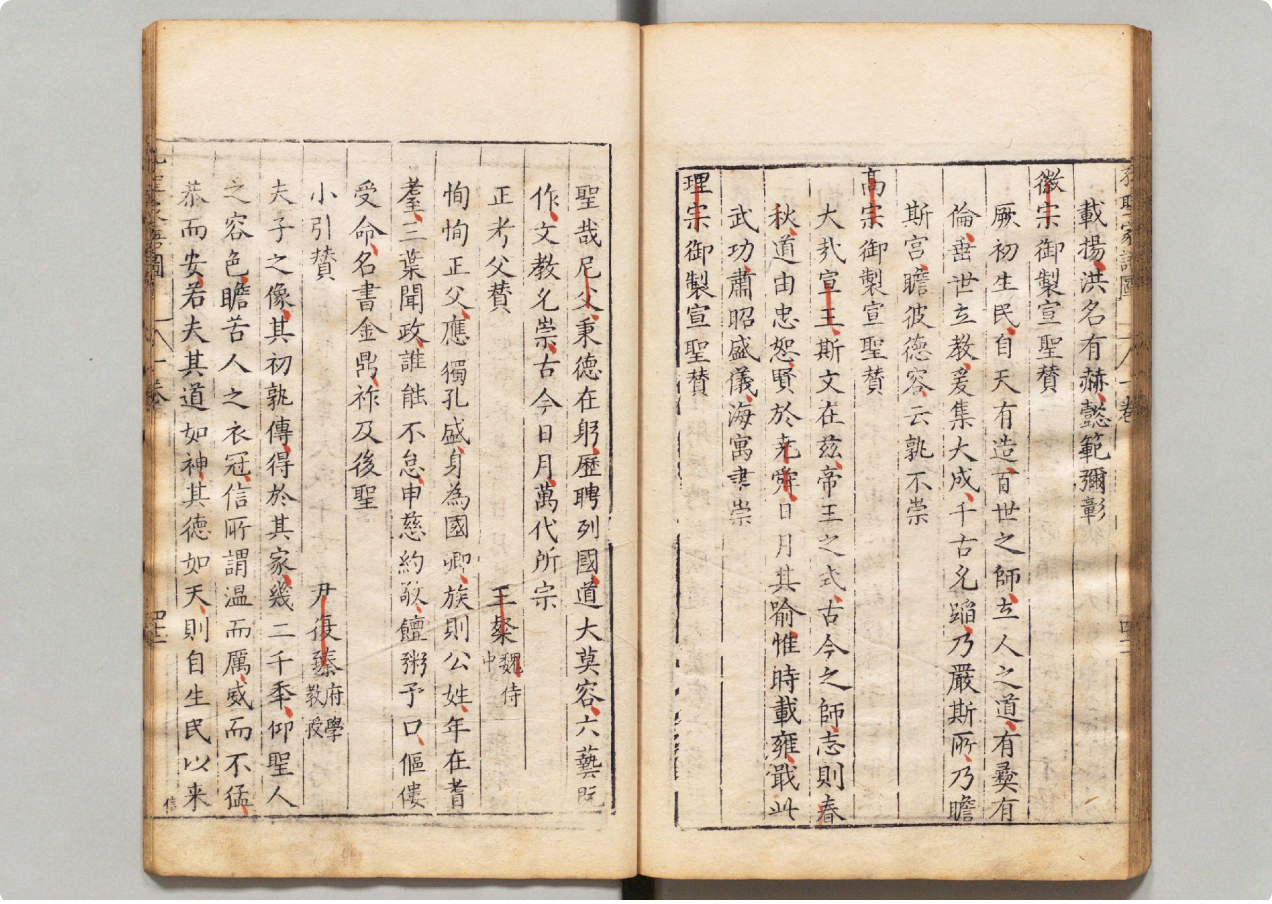 載揚洪名有赫懿範彌彰
徽宗御製宣聖賛
厥初生民自天有造百世之師立人之道有彜有
倫垂世立教爰集大成千古允蹈乃嚴斯所乃瞻
斯宮瞻彼德容云孰不崇
高宗御製宣聖賛
大㢤宣王斯文在玆帝王之式古今之師志則春
秋道由忠恕賢於尭舜日月其喻惟時載雍戢此
武功肅昭盛儀海寓聿崇
理宗御製宣聖賛
聖哉尼父秉德在躬歷聘列國道大莫容六藝旣
作文教允崇古今日月萬代所宗
正考父賛 王粲 魏侍中
恂恂正父應獨孔盛身為國卿族則公姓年在耆
耋三葉聞政誰能不怠申慈約敬饘粥予口傴僂
受命名書金鼎祚及後聖
小引賛 尹復臻 府學教授
夫子之像其初孰傳得於其家幾二千秊仰聖人
之容色瞻苦人之衣冠信所謂温而厲威而不猛
恭而安若夫其道如神其德如天則自生民以来